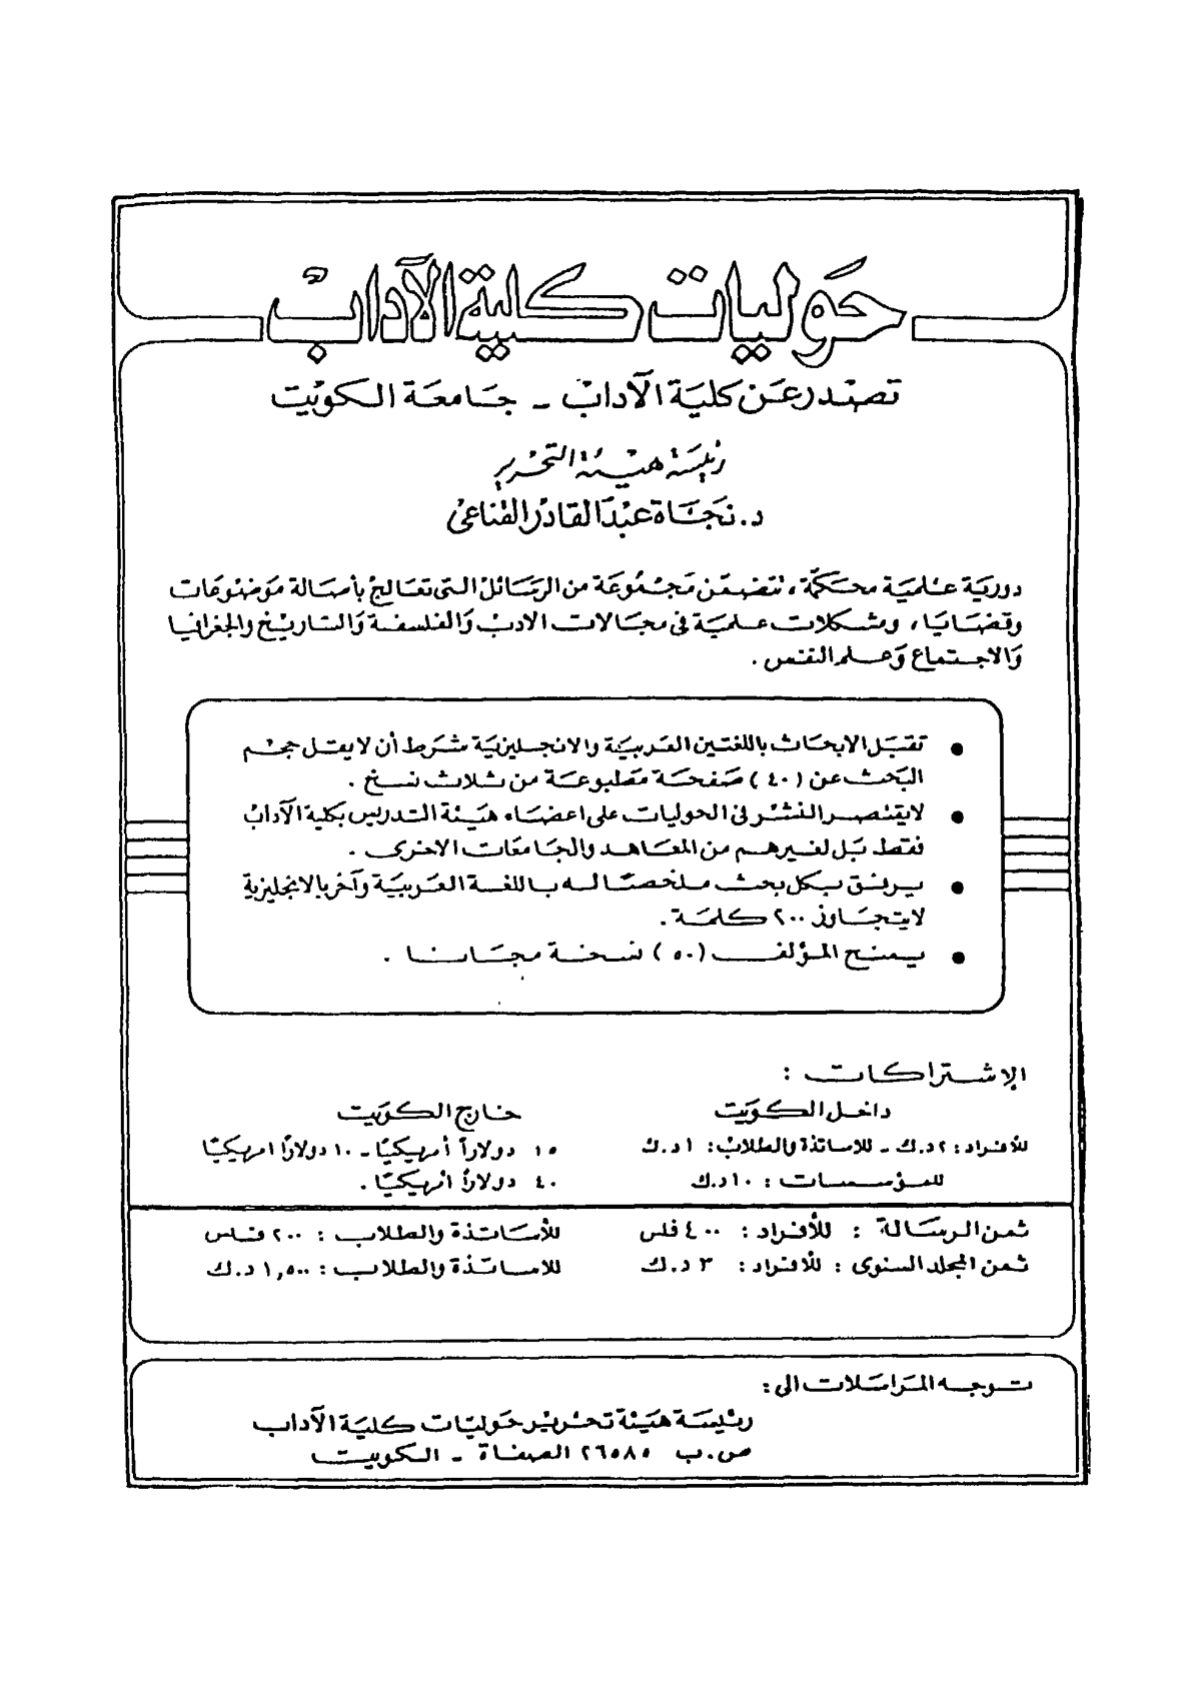 حَوليات كلية الآداب
تصدر عن كلية الآداب - جامعة الكويت
رئيسة هيئة التحرير
د. نجاة عبد القادر القناعي
دورية علمية محكمة، تتضمن مجموعة من الرسائل التي تعالج بأصالة موضوعات
وقضايا، ومشكلات علمية في مجالات الادب والفلسفة والتاريخ والجغرافيا
والاجتماع وعلم النفس .
● تقبل الابحاث باللغتين العربية والانجليزية شرط أن لا يقل حجم
البحث عن (٤٠) صفحة مطبوعة من ثلاث نسخ .
● لا يقتصر النشر في الحوليات على اعضاء هيئة التدريس بكلية الآداب
فقط بل لغيرهم من المعاهد والجامعات الاخرى .
● يرفق بكل بحث ملخصا له باللغة العربية وآخر بالانجليزية
لا يتجاوز ٢٠٠ كلمة .
● يمنح المؤلف (٥٠) نسخة مجانا .
الإشتراكات :
داخل الكويت
خارج الكويت
للأفراد : ٢ د.ك - للاساتذة والطلاب : ١ د.ك
١٥ دولاراً أمريكيًا - ١٠ دولارًا امريكيًا
للمؤسسات : ١٠ د.ك
٤٠ دولارًا امريكيًا .
ثمن الرسالة : للأفراد : ٤٠٠ فلس
للأساتذة والطلاب : ٢٠٠ فلس
ثمن المجلد السنوى : للأفراد : ٣ د.ك
للاساتذة والطلاب : ١,٥٠٠ د.ك
توجه المراسلات الى :
رئيسة هيئة تحرير حوليات كلية الآداب
ص.ب ٢٦٥٨٥ الصفاة - الكويت